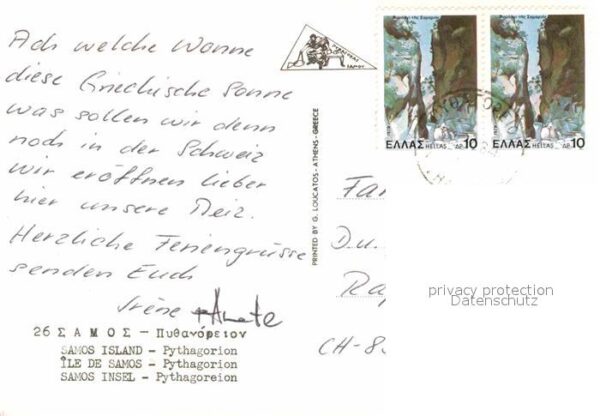 Ach welche Wonne
diese Griechische Sonne
was sollen wir denn
noch in der Schweiz
wir eröffnen lieber
hier unsere Beiz.
Herzliche Feriengrüsse
senden Euch
Irène
26 ΣΑΜΟΣ — Πυθαγόρειον
SAMOS ISLAND - Pythagorion
ÎLE DE SAMOS - Pythagorion
SAMOS INSEL - Pythagoreion
PRINTED BY G. LOUCATOS - ATHENS - GREECE
Φαράγγι της Σαμαριάς
ΕΛΛΑΣ HELLAS ΔΡ. 10
ΕΛΛΑΣ HELLAS ΔΡ. 10
Fa
D.u.
Ra
CH-8
privacy protection
Datenschutz